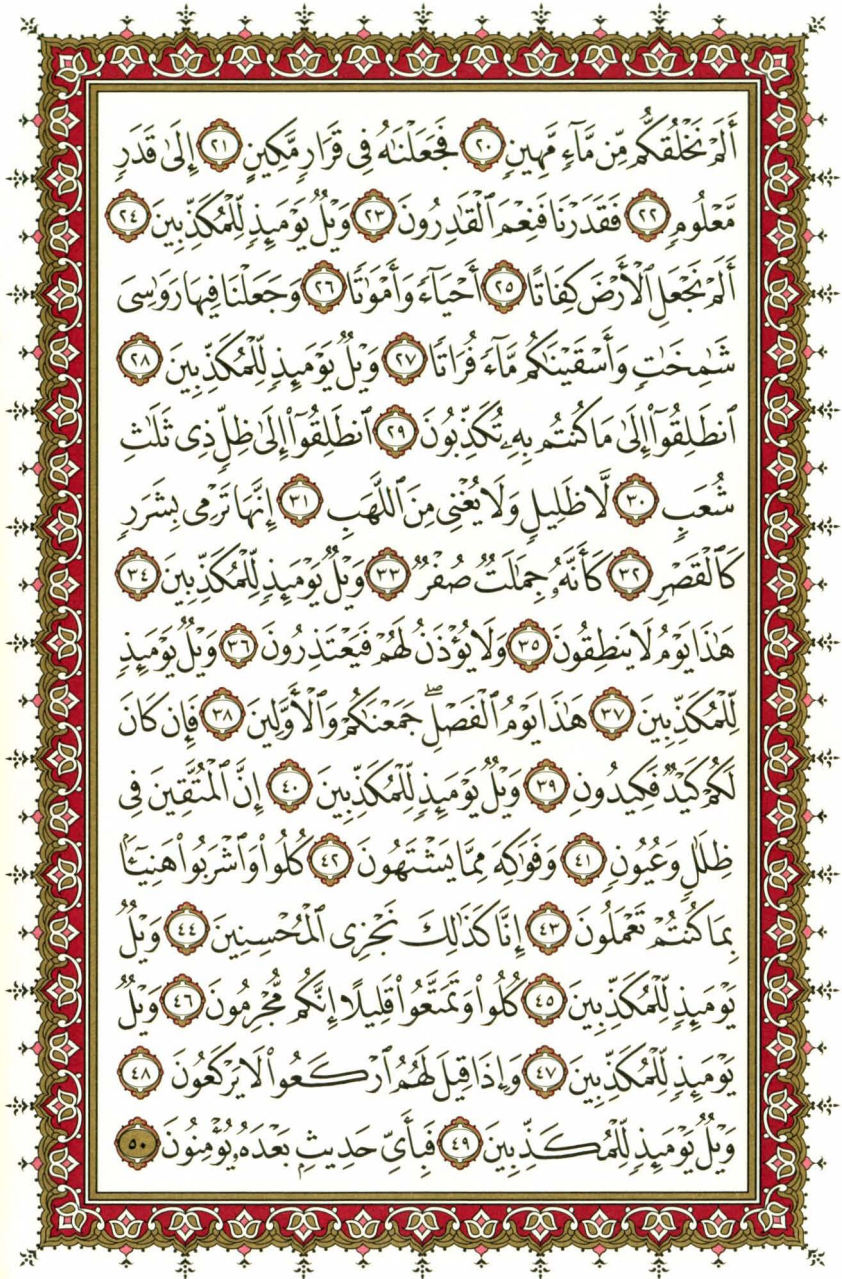 أَلَمْ نَخْلُقكُّم مِّن مَّآءٍ مَّهِينٍ ٢٠ فَجَعَلْنَٰهُ فِى قَرَارٍ مَّكِينٍ ٢١ إِلَىٰ قَدَرٍ
مَّعْلُومٍ ٢٢ فَقَدَرْنَا فَنِعْمَ ٱلْقَٰدِرُونَ ٢٣ وَيْلٌ يَوْمَئِذٍ لِّلْمُكَذِّبِينَ ٢٤
أَلَمْ نَجْعَلِ ٱلْأَرْضَ كِفَاتًا ٢٥ أَحْيَآءً وَأَمْوَٰتًا ٢٦ وَجَعَلْنَا فِيهَا رَوَٰسِىَ
شَٰمِخَٰتٍ وَأَسْقَيْنَٰكُم مَّآءً فُرَاتًا ٢٧ وَيْلٌ يَوْمَئِذٍ لِّلْمُكَذِّبِينَ ٢٨
ٱنطَلِقُوٓا۟ إِلَىٰ مَا كُنتُم بِهِۦ تُكَذِّبُونَ ٢٩ ٱنطَلِقُوٓا۟ إِلَىٰ ظِلٍّ ذِى ثَلَٰثِ
شُعَبٍ ٣٠ لَّا ظَلِيلٍ وَلَا يُغْنِى مِنَ ٱللَّهَبِ ٣١ إِنَّهَا تَرْمِى بِشَرَرٍ
كَٱلْقَصْرِ ٣٢ كَأَنَّهُۥ جِمَٰلَتٌ صُفْرٌ ٣٣ وَيْلٌ يَوْمَئِذٍ لِّلْمُكَذِّبِينَ ٣٤
هَٰذَا يَوْمُ لَا يَنطِقُونَ ٣٥ وَلَا يُؤْذَنُ لَهُمْ فَيَعْتَذِرُونَ ٣٦ وَيْلٌ يَوْمَئِذٍ
لِّلْمُكَذِّبِينَ ٣٧ هَٰذَا يَوْمُ ٱلْفَصْلِ ۖ جَمَعْنَٰكُمْ وَٱلْأَوَّلِينَ ٣٨ فَإِن كَانَ
لَكُمْ كَيْدٌ فَكِيدُونِ ٣٩ وَيْلٌ يَوْمَئِذٍ لِّلْمُكَذِّبِينَ ٤٠ إِنَّ ٱلْمُتَّقِينَ فِى
ظِلَٰلٍ وَعُيُونٍ ٤١ وَفَوَٰكِهَ مِمَّا يَشْتَهُونَ ٤٢ كُلُوا۟ وَٱشْرَبُوا۟ هَنِيٓـًٔۢا
بِمَا كُنتُمْ تَعْمَلُونَ ٤٣ إِنَّا كَذَٰلِكَ نَجْزِى ٱلْمُحْسِنِينَ ٤٤ وَيْلٌ
يَوْمَئِذٍ لِّلْمُكَذِّبِينَ ٤٥ كُلُوا۟ وَتَمَتَّعُوا۟ قَلِيلًا إِنَّكُم مُّجْرِمُونَ ٤٦ وَيْلٌ
يَوْمَئِذٍ لِّلْمُكَذِّبِينَ ٤٧ وَإِذَا قِيلَ لَهُمُ ٱرْكَعُوا۟ لَا يَرْكَعُونَ ٤٨
وَيْلٌ يَوْمَئِذٍ لِّلْمُكَذِّبِينَ ٤٩ فَبِأَىِّ حَدِيثٍۭ بَعْدَهُۥ يُؤْمِنُونَ ٥٠